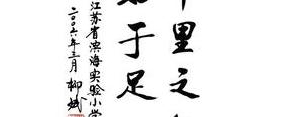 里之
于足
江苏省滨海实验小学
二〇〇六年三月 柳斌